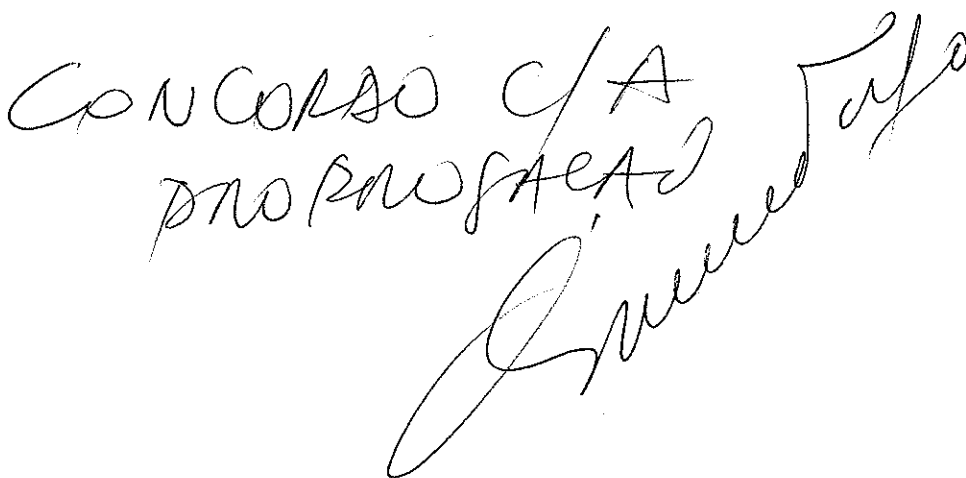 CONCORDO C/ A
PRORROGAÇÃO